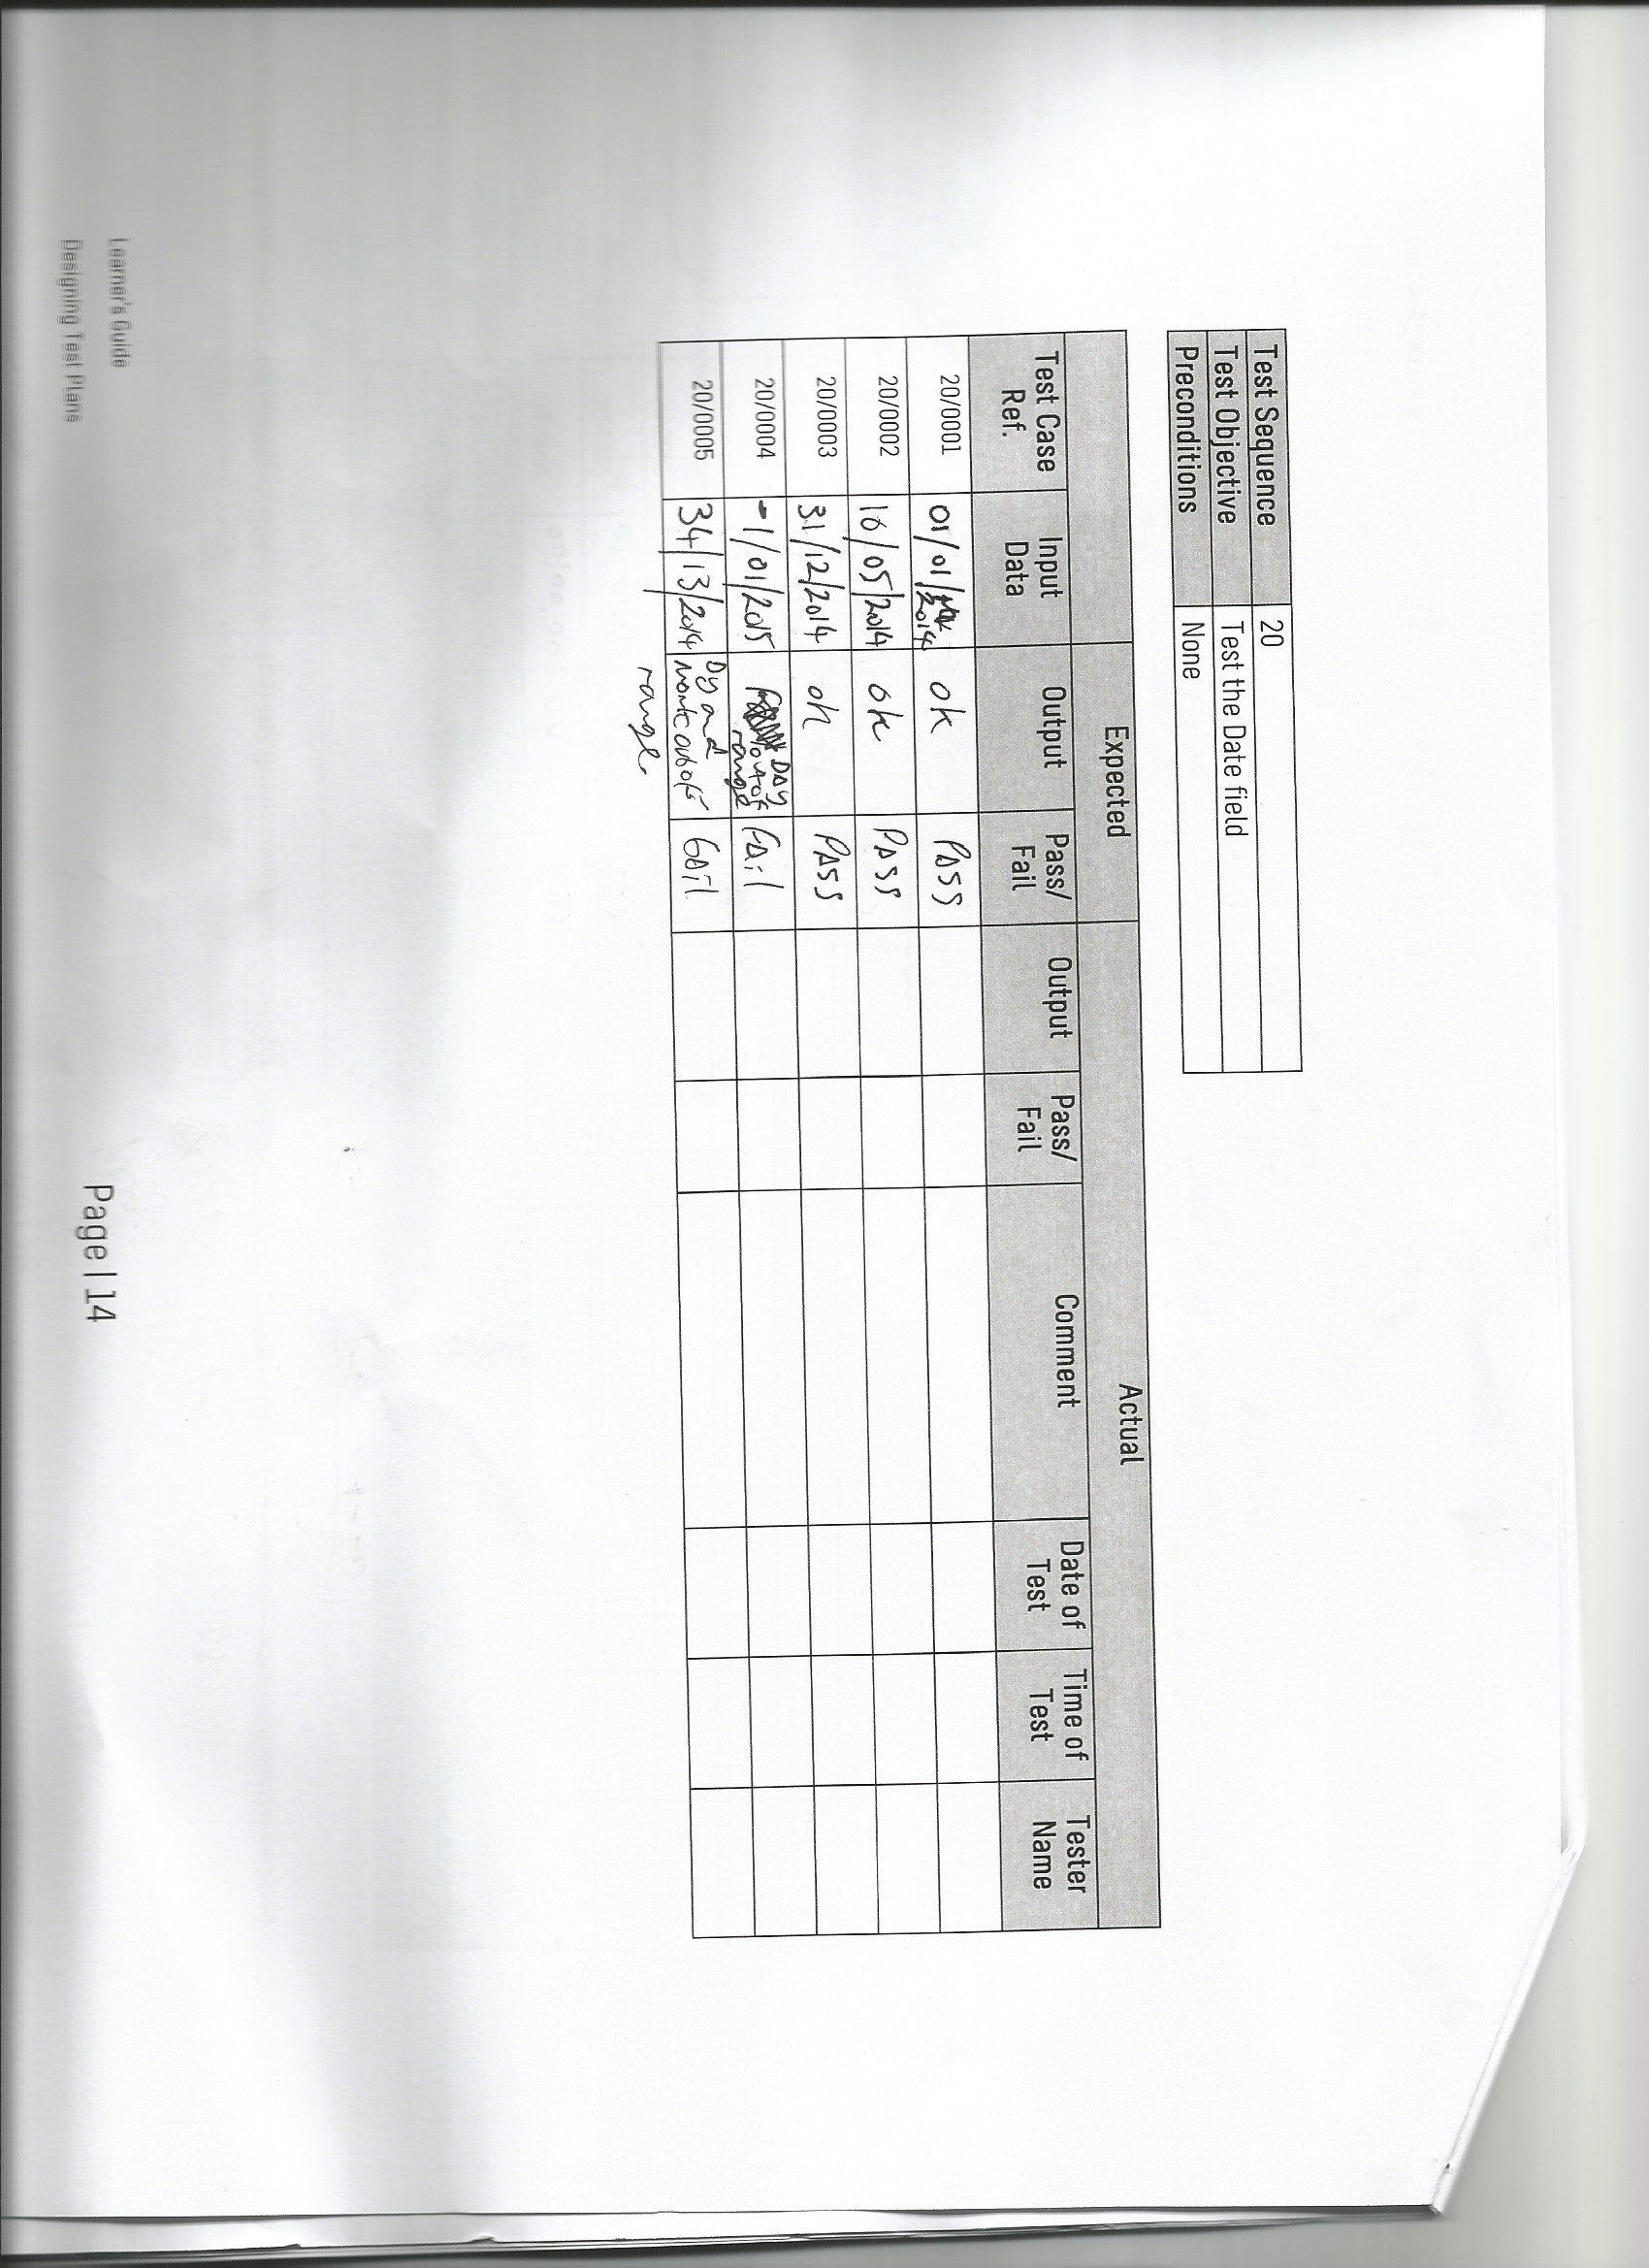 Test Sequence 20
Test Objective Test the Date field
Preconditions None
Expected Actual
Test Case Ref. Input Data Output Pass/ Fail Output Pass/ Fail Comment Date of Test Time of Test Tester Name
20/0001 01/01/2014 ok PASS
20/0002 16/05/2014 ok PASS
20/0003 31/12/2014 oh PASS
20/0004 -1/01/2015 Day out of range Fail
20/0005 34/13/2014 Dy and range. fail
Learner's Guide
Designing Test Plans
Page | 14